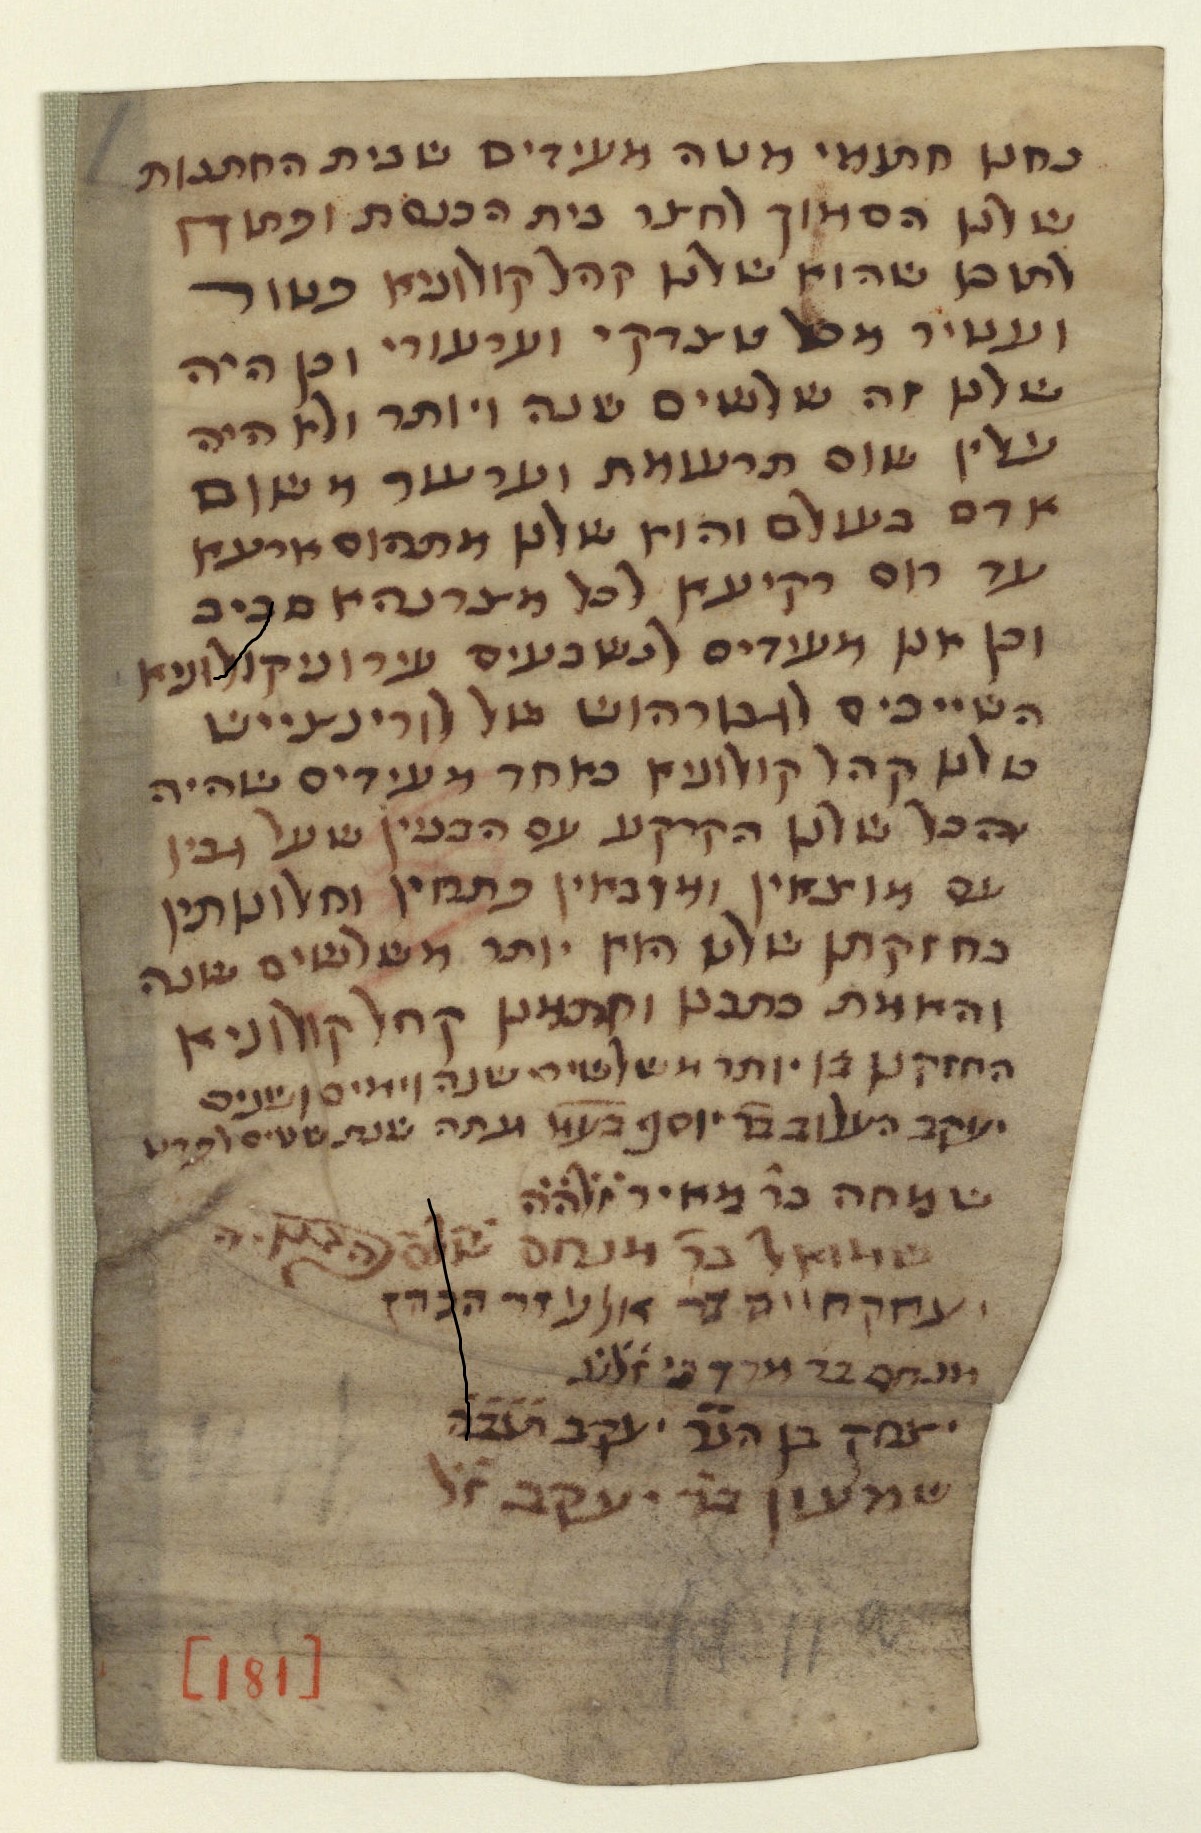 אנחנו חתומי מטה מעידים שבית החתנות
שלנו הסמוך לחצר בית הכנסת ופתוח
לתוכו שהוא שלנו קהל קולוניא פטור
ועשיר מכל טצדקי וערעורי וכן היה
שלנו זה שלשים שנה ויותר ולא היה
עליו שום תרעומת וערעור משום
אדם בעולם והוא שלנו מתהום ארעא
עד רום רקיעא לכל מצרנהא סביב
וכן אנו מעידים לנשבעים עירוני קולוניא
השייכים לגבורהוש של לורינצייש
שלנו קהל קולוניא כאחד מעידים שהיה
הכל שלנו הקרקע עם הבניין שעל גביו
עם מוצאין ומובאין פתחין וחלונותין
בחזקתנו שלנו הוא יותר משלשים שנה
והאמת כתבנו וחתמנו קהל קולוניא
החזקנו בו יותר משלשים שנה וימים ושנים
יעקב העלוב בר יוסף עתה שנת ששים לפרט
שמחה בר מאיר זלה״ה
שמואל בר מנחם
יצחק חיים בר אלעזר הכהן
מנחם בר מרדכי
יצחק בן הר יעקב
שמעון בר יעקב ז״ל
[181]